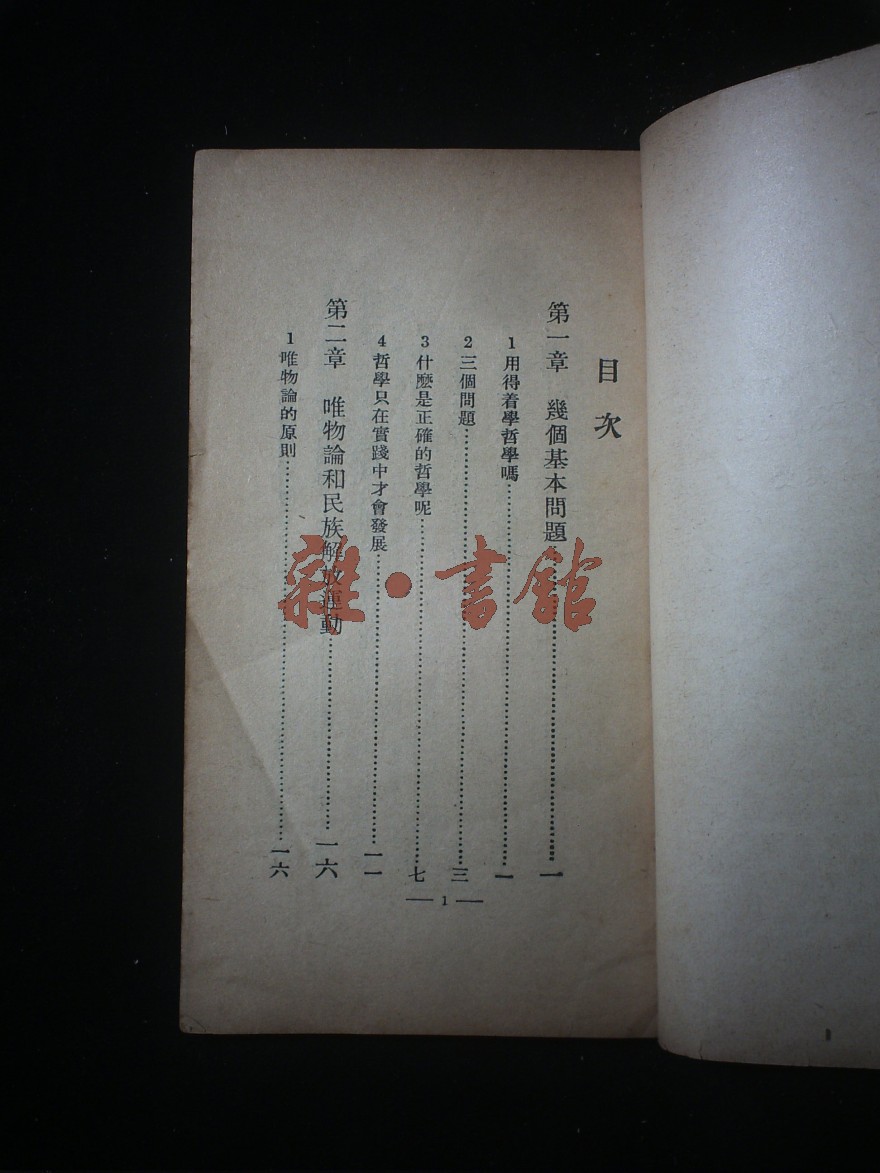 目次
第一章　幾個基本問題…………一
1 用得着學哲學嗎…………一
2 三個問題…………三
3 什麽是正確的哲學呢…………七
4 哲學只在實踐中才會發展…………一一
第二章　唯物論和民族解放運動…………一六
1 唯物論的原則…………一六
— 1 —
雜·書館